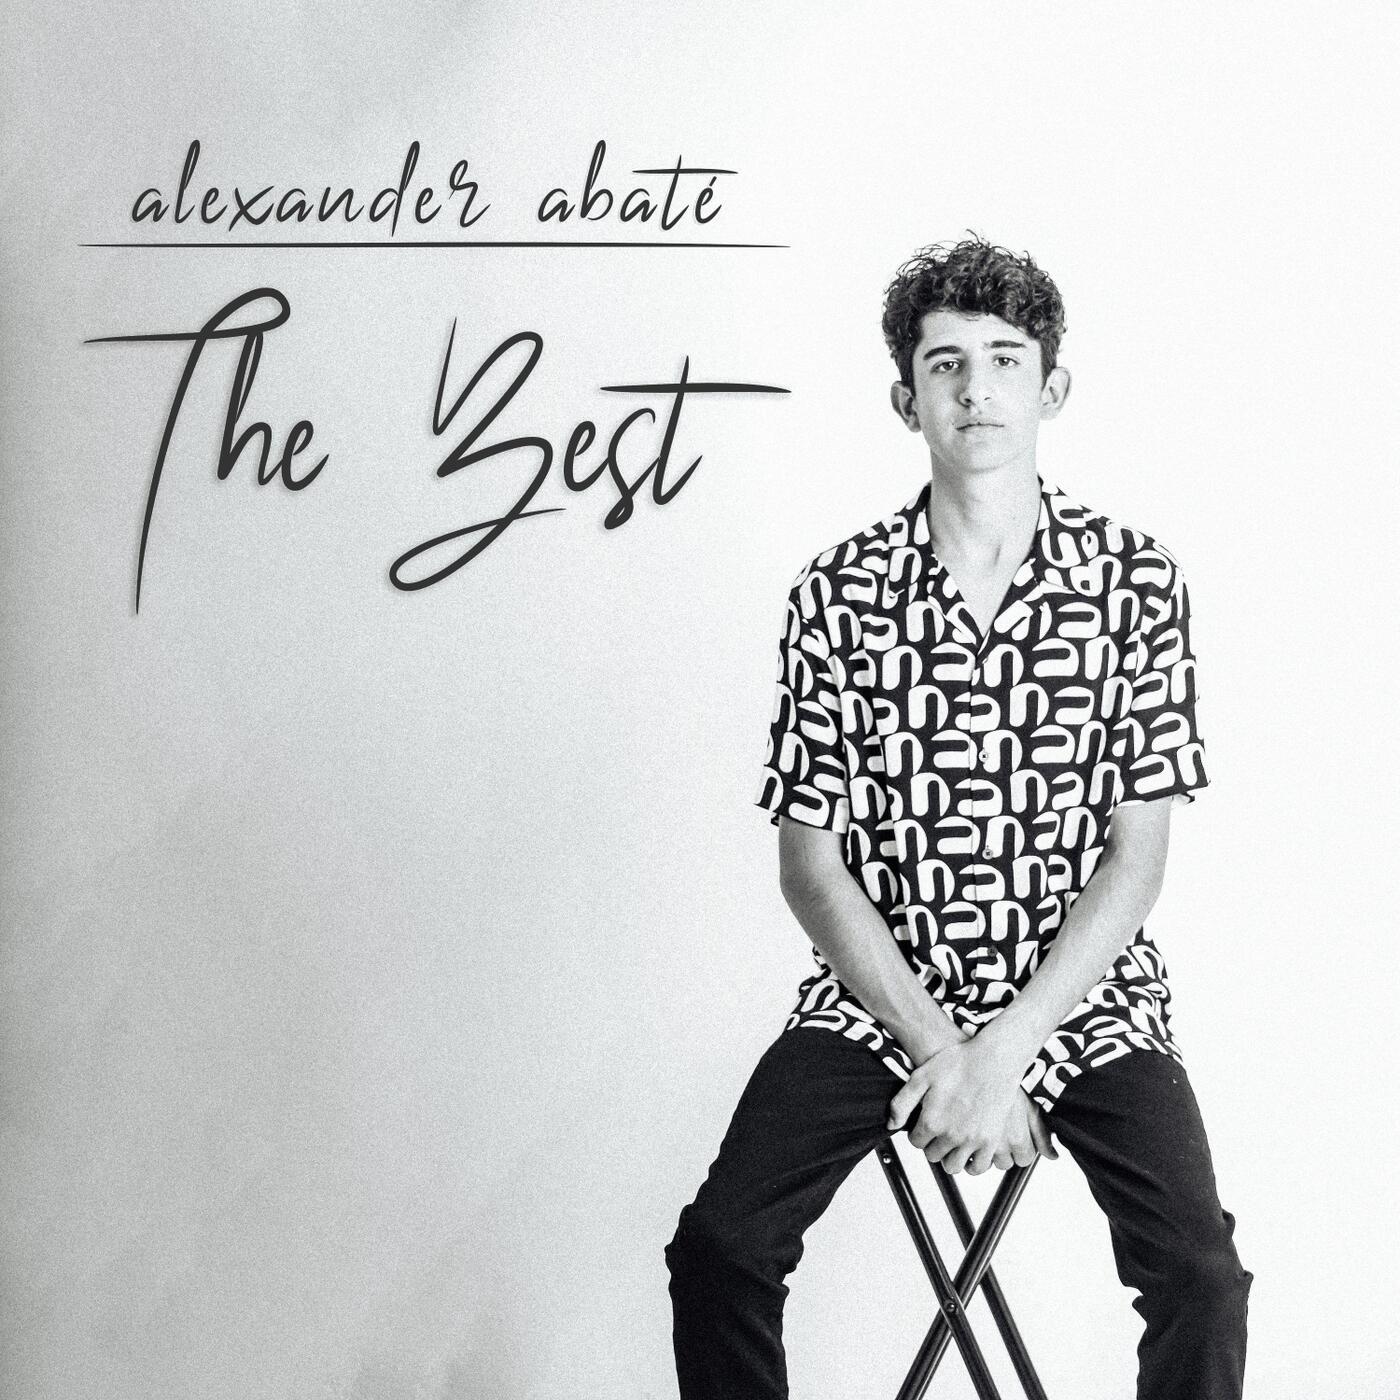 alexander abaté
The Best